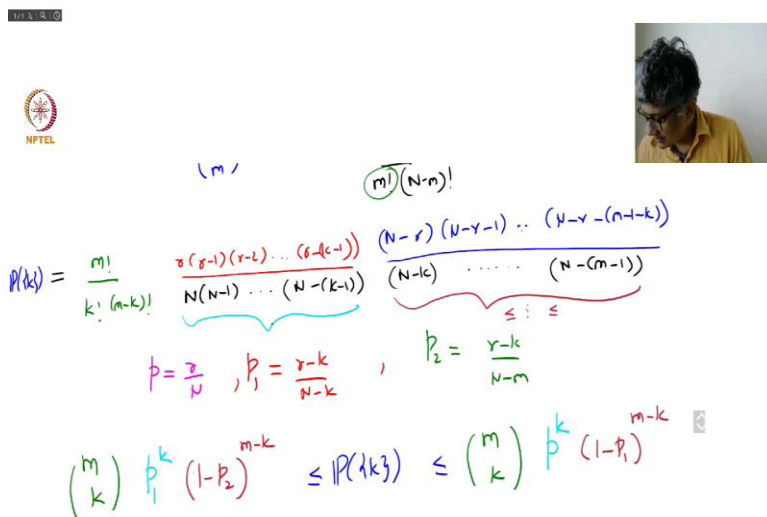 1/1
NPTEL
(m)
m! (N-m)!
P({k}) = m! / k! (m-k)! r(r-1)(r-2) ... (r-(k-1)) / N(N-1) ... (N-(k-1)) (N-r)(N-r-1) .. (N-r-(m-1-k)) / (N-k) ...... (N-(m-1))
≤ ⋮ ≤
p = r/N , p₁ = (r-k)/(N-k) , p₂ = (r-k)/(N-m)
(m k) p₁^k (1-p₂)^(m-k) ≤ P({k}) ≤ (m k) p^k (1-p₁)^(m-k)